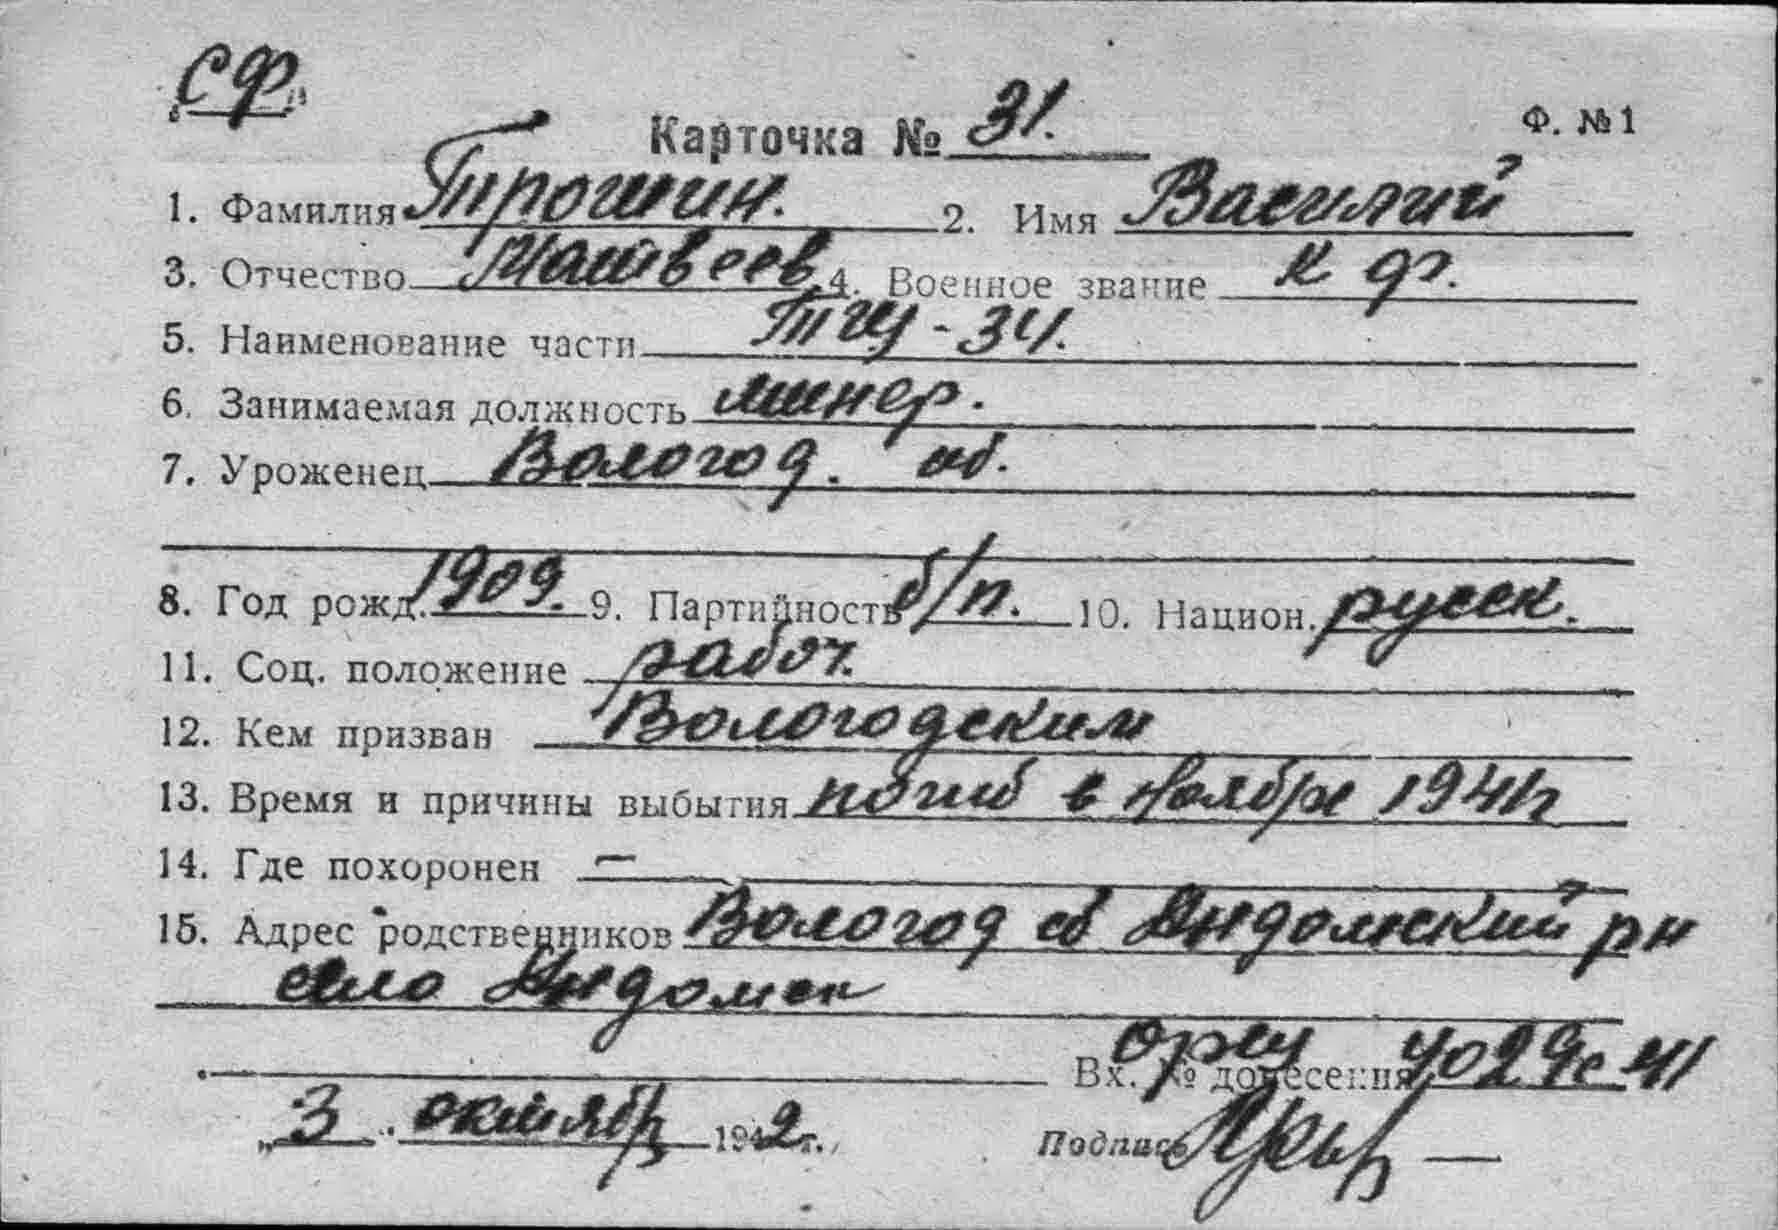 „СФ"
Карточка № 31. Ф. №1
1. Фамилия Трошин. 2. Имя Василий
3. Отчество Матвеев. 4. Военное звание к ф.
5. Наименование части ТЩ-34.
6. Занимаемая должность минер.
7. Уроженец Вологод. об.
8. Год рожд. 1909. 9. Партийность б/п. 10. Национ. русск.
11. Соц. положение рабоч.
12. Кем призван Вологодским
13. Время и причины выбытия погиб в ноябре 1941г
14. Где похоронен —
15. Адрес родственников Вологод об Андомский рн
село Андомск
Вх. № донесения 4029с 41
„3" октябр 1942г. Подпись